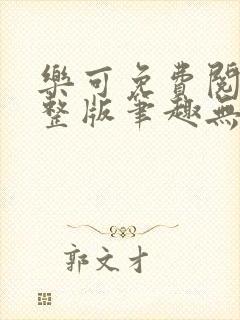 樂可免費閱
整版筆趣無
郭文才